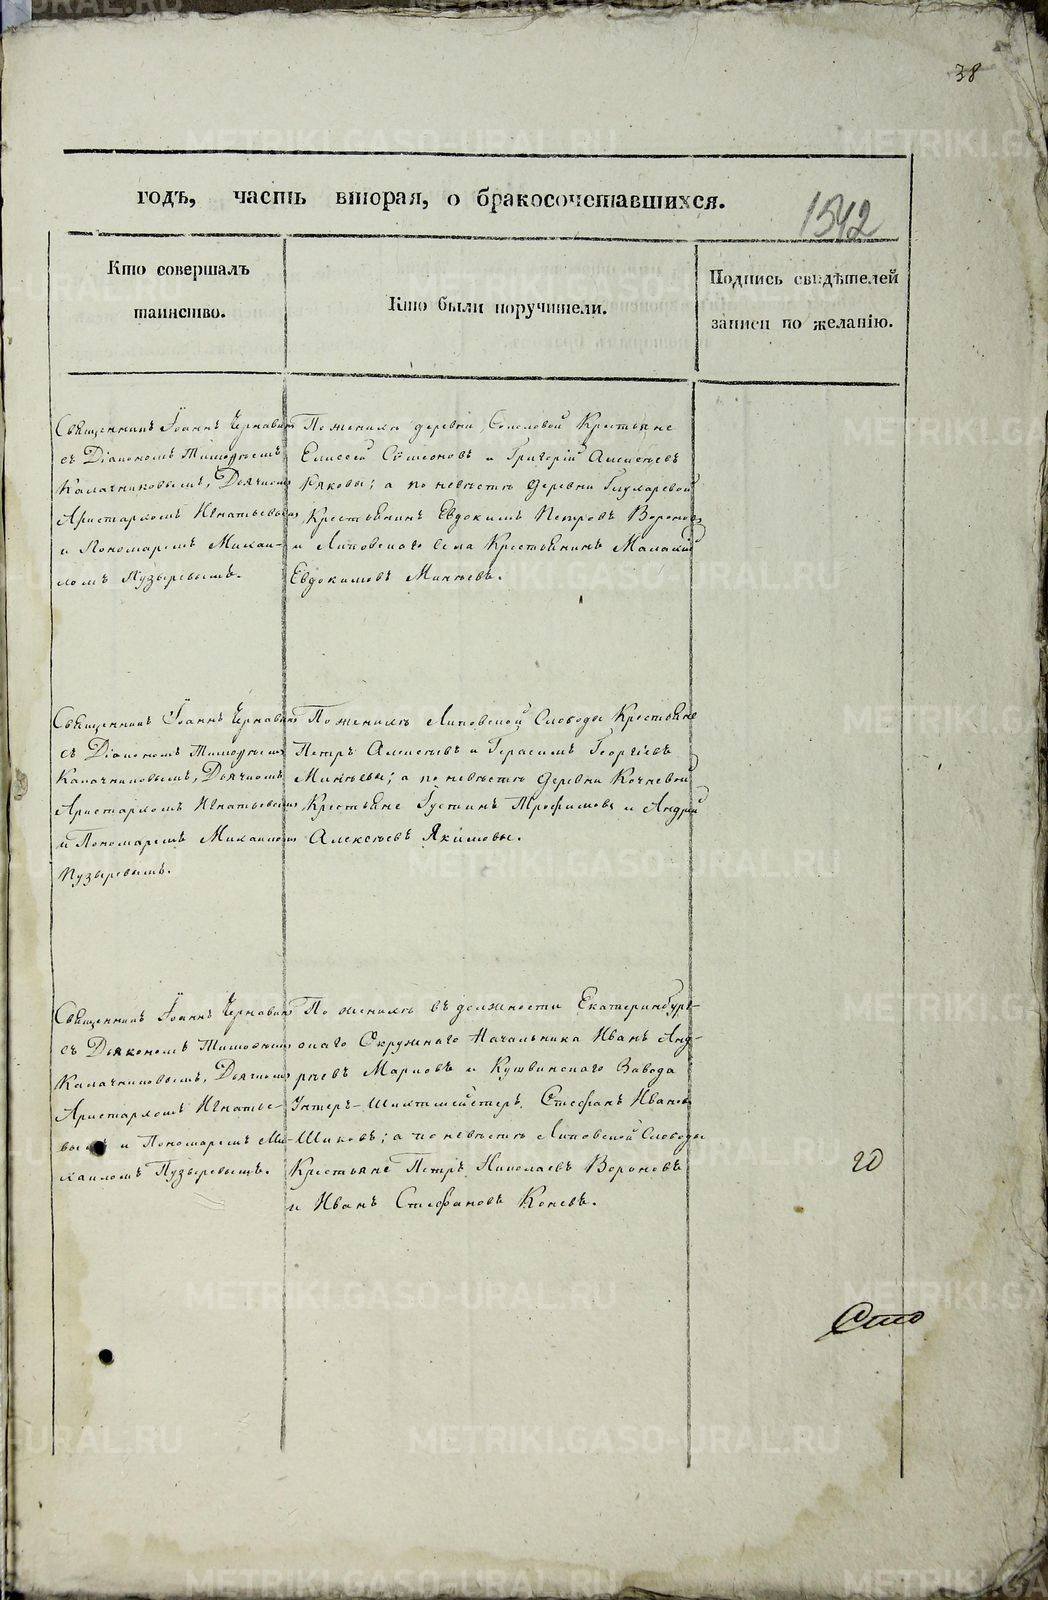 38
годъ, часть вторая, о бракосочетавшихся.
1542
Кто совершалъ
таинство.
Кто были поручители.
Подпись свидѣтелей
записи по желанію.
Священникъ Іоаннъ Чернавинъ
съ Діакономъ Тимоѳеемъ
Калачниковымъ, Дьячкомъ
Аристархомъ Игнатьевымъ
и Пономаремъ Михаи-
ломъ Пузыревымъ.
По женихѣ деревни Соколовой Крестьяне
Елисей Сѷмеоновъ и Григорій Алексѣевъ
а по невѣстѣ деревни Глухаревой
Крестьянинъ Евдокимъ Петровъ Вороновъ
и Липовскаго села Крестьянинъ Малахій
Евдокимовъ Минѣевъ.
Священникъ Іоаннъ Чернавинъ
съ Діакономъ Тимоѳеемъ
Калачниковымъ, Дьячкомъ
Аристархомъ Игнатьевымъ
и Пономаремъ Михаиломъ
Пузыревымъ.
По женихѣ Липовской Слободы Крестьяне
Петръ Алексѣевъ и Герасимъ Георгіевъ
Минѣевы; а по невѣстѣ деревни Кочневой
Крестьяне Густинъ Трофимовъ и Андрей
Алексѣевъ Якимовы.
Священникъ Іоаннъ Чернавинъ
съ Дьякономъ Тимоѳеемъ
Калачниковымъ, Дьячкомъ
Аристархомъ Игнатье-
вымъ и Пономаремъ Ми-
хаиломъ Пузыревымъ.
По женихѣ въ должности Екатеринбург-
скаго Окружнаго Начальника Иванъ Анд-
реевъ Марковъ и Кушвинскаго Завода
Унтеръ-Шихтмейстеръ Стефанъ Ивановъ
Шиховъ; а по невѣстѣ Липовской Слободы
Крестьяне Петръ Николаевъ Вороновъ
и Иванъ Стефановъ Коневъ.
20
Сто
METRIKI.GASO-URAL.RU